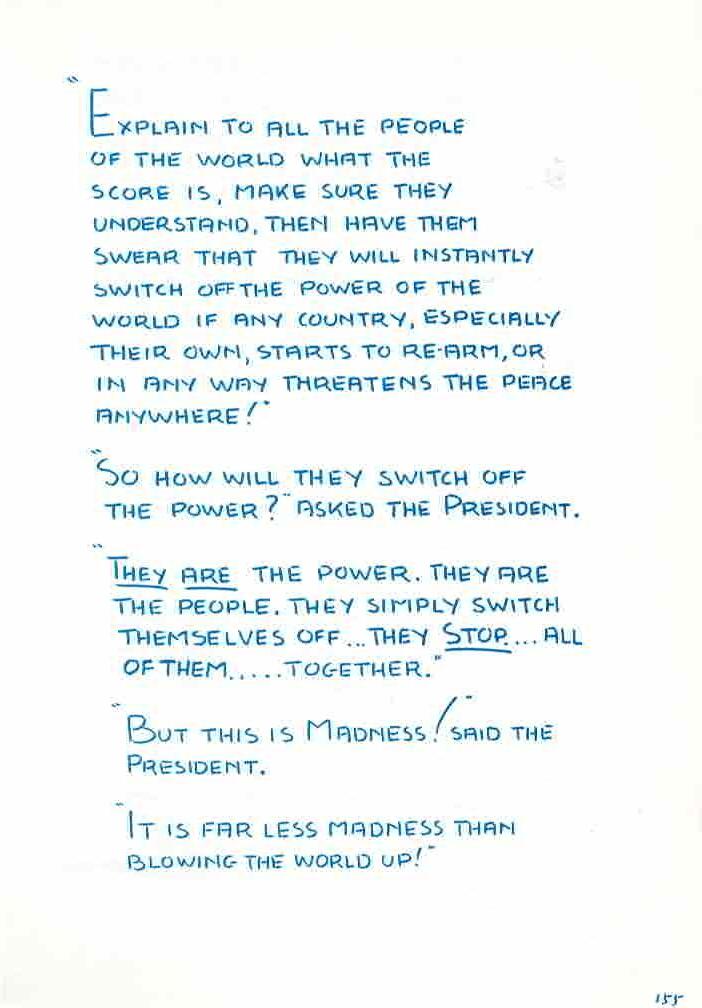 "EXPLAIN TO ALL THE PEOPLE
OF THE WORLD WHAT THE
SCORE IS, MAKE SURE THEY
UNDERSTAND, THEN HAVE THEM
SWEAR THAT THEY WILL INSTANTLY
SWITCH OFF THE POWER OF THE
WORLD IF ANY COUNTRY, ESPECIALLY
THEIR OWN, STARTS TO RE-ARM, OR
IN ANY WAY THREATENS THE PEACE
ANYWHERE!"
"SO HOW WILL THEY SWITCH OFF
THE POWER?" ASKED THE PRESIDENT.
"THEY ARE THE POWER. THEY ARE
THE PEOPLE. THEY SIMPLY SWITCH
THEMSELVES OFF... THEY STOP.... ALL
OF THEM..... TOGETHER."
"BUT THIS IS MADNESS!" SAID THE
PRESIDENT.
"IT IS FAR LESS MADNESS THAN
BLOWING THE WORLD UP!"
155